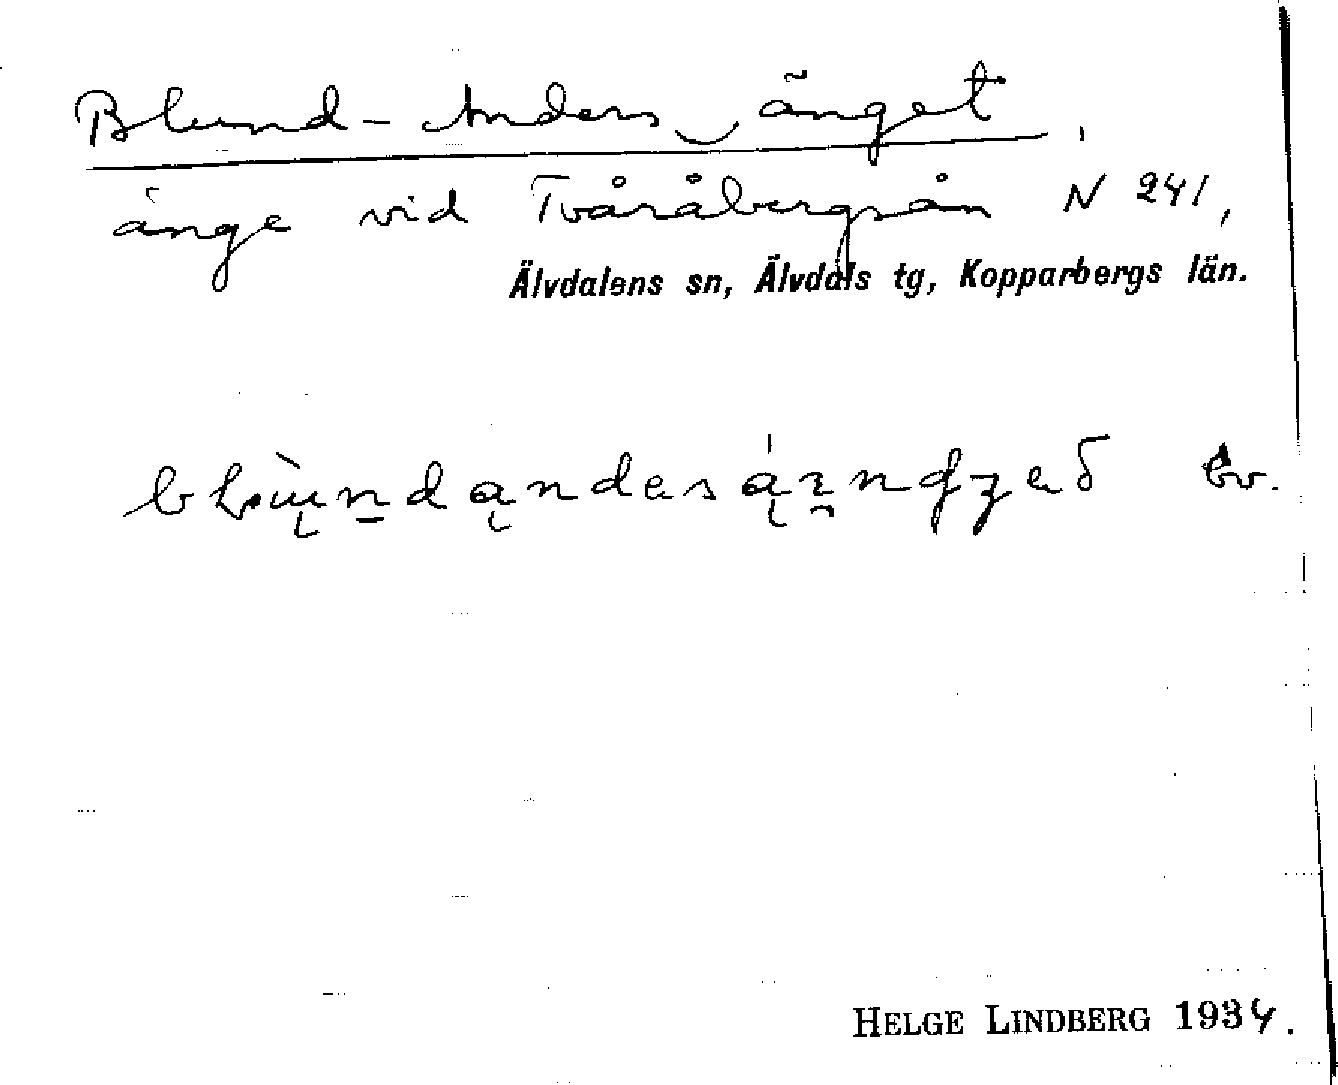 Blund-Anders änget,
änge vid Tvåråbergsån N 241,
Älvdalens sn, Älvdals tg, Kopparbergs län.
HELGE LINDBERG 1934.